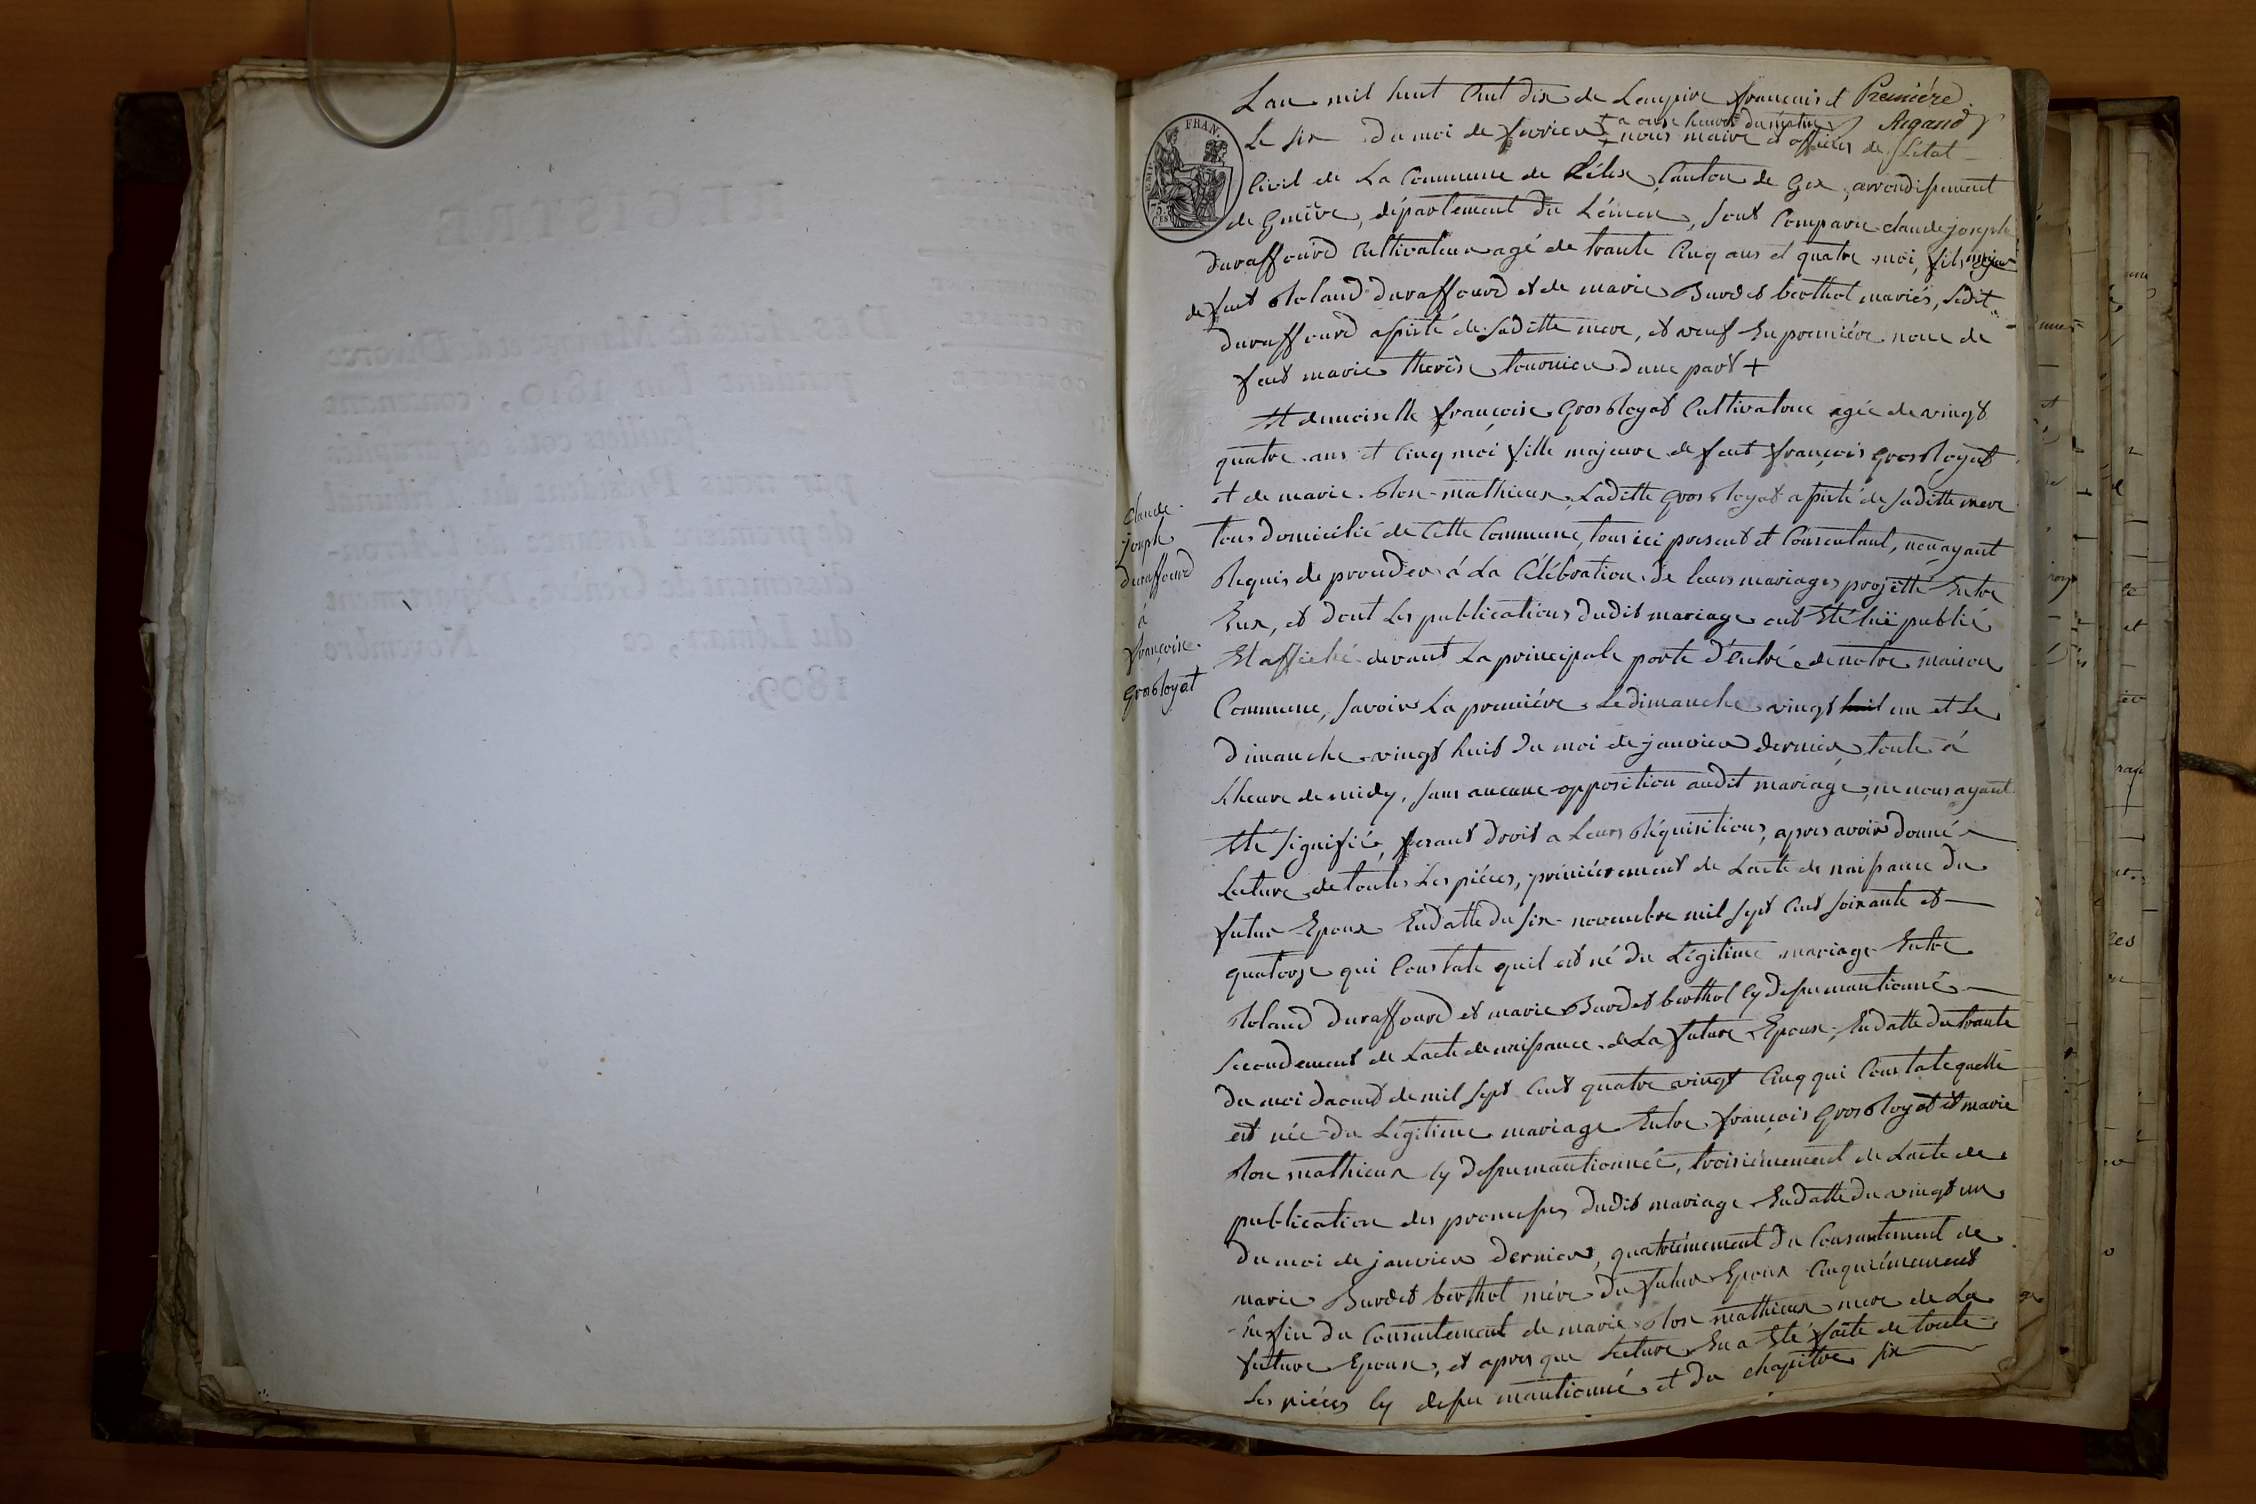 Lan mil huit Cent dix de Lempire francais et Première
Argand
+ a onze heures du matin
Le six du moi de fevrier + nous maire et officier de Létat
Civil de La Commune de Lélex, Canton de Gex, arrondissement
de Genêve, département du Léman, sont Comparu claude joseph
duraffourd Cultivateur agé de trante Cinq ans et quatre moi, fils majeur
de feut Roland duraffourd et de marie Burdet berthot mariés, Ledit
duraffourd assisté de saditte mere, et veuf En première noce de
feut marie therèse tournier dune part +
Et demoiselle françoise Gros Royat Cultivatrice agée de vingt
quatre ans et Cinq moi fille majeure de feut françois Gros Royat
et de marie Rose mathieux, Laditte Gros Royat assisté de saditte mere
tous domicilié de Cette Commune, tous ici present et Consentant, nous ayant
Requis de proceder á La Célébration de leurs mariages projetté Entre
Eux, et dont Les publications dudit mariage ont Eté luë publié
Et affiché devant La principale porte d'Entrée de notre maison
Commune, savoir La première Le dimanche vingt huit un et Le
dimanche vingt huit du moi de janvier dernier, toute á
Lheure de midy, sans aucune opposition audit mariage, ne nous ayant
Eté signifié, fesant droit a Leurs Réquisitions, apres avoir donné
Lecture de toutes Les piéces, prémiérement de Lacte de naissance du
futur Epoux Endatte du six novembre mil sept Cent soixante et
quatorze qui Constate quil est né du Légitime mariage Entre
Roland duraffourd et marie Burdet berthot Cy dessu mantionné
secondement de Lacte de naissance de La future Epouse, Endatte du trante
du moi daoust de mil sept Cent quatre vingt Cinq qui Constate quelle
est née du Légitime mariage Entre françois Gros Royat et marie
Rose mathieux Cy dessu mantionnée, troisiémement de Lacte de
publication des promesses dudit mariage Endatte du vingt un
du moi de janvier dernier, quatriémement du Consantement de
marie Burdet berthot mére du futur Epoux Cinquiémement
Enfin du Consentement de marie Rose mathieux mere de La
future Epouse, et apres que Lecture En a Eté faite de toute
Les piéces Cy dessu mantionné et du chapitre six
Claude
joseph
duraffourd
à
françoise
Gros Royat
FRAN.
EMP.
75
CES
REGISTRE
Des Actes de Mariage et de Divorce
pendant l'an 1810, contenant
feuillets cotés et paraphés
par nous Président du Tribunal
de première Instance de l'Arron-
dissement de Genève, Département
du Léman, ce Novembre
1809.